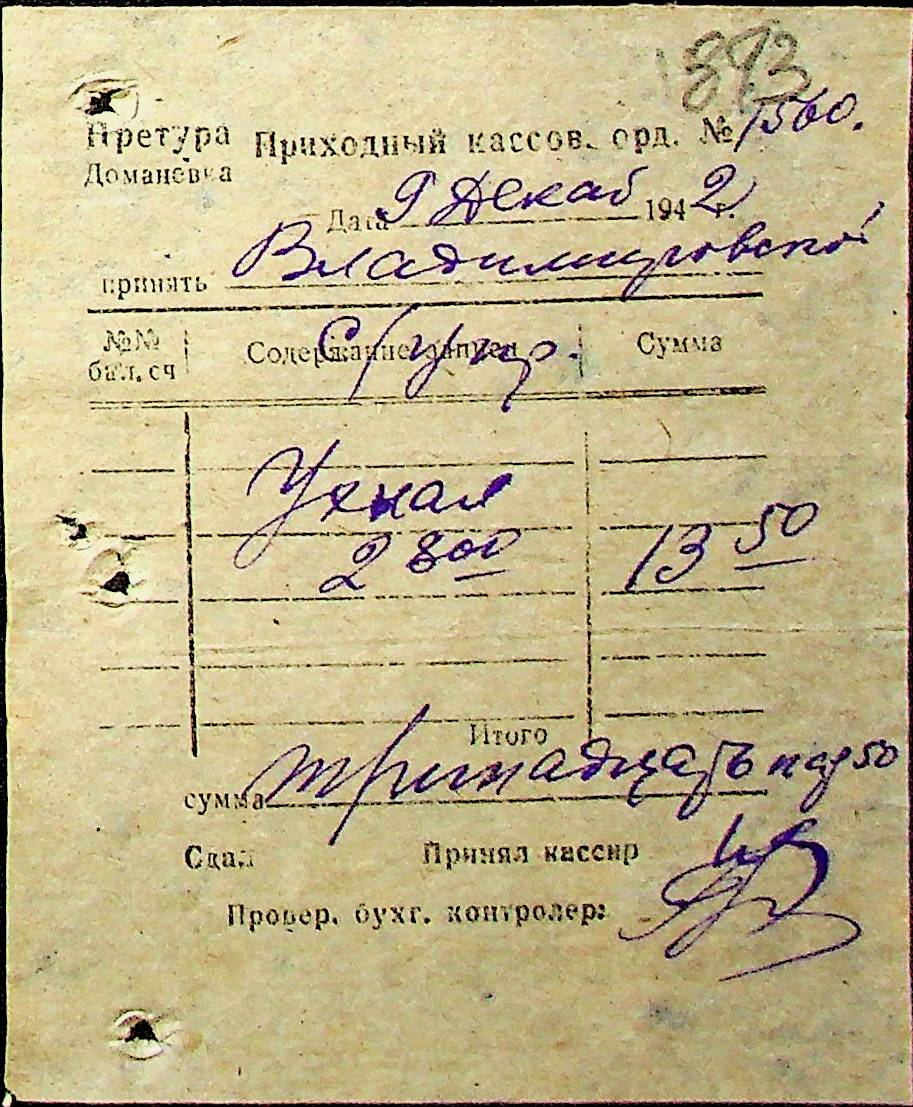 1893
Претура Приходный кассов. орд. № 1560.
Доманевка
Дата 9 Декаб 1942 г.
принять Владимировской
С/упр.
№№ бал. сч Содержание записи Сумма
2800 13 50
Итого
сумма тринадцать 50
Сдал Принял кассир
Провер. бухг. контролер: